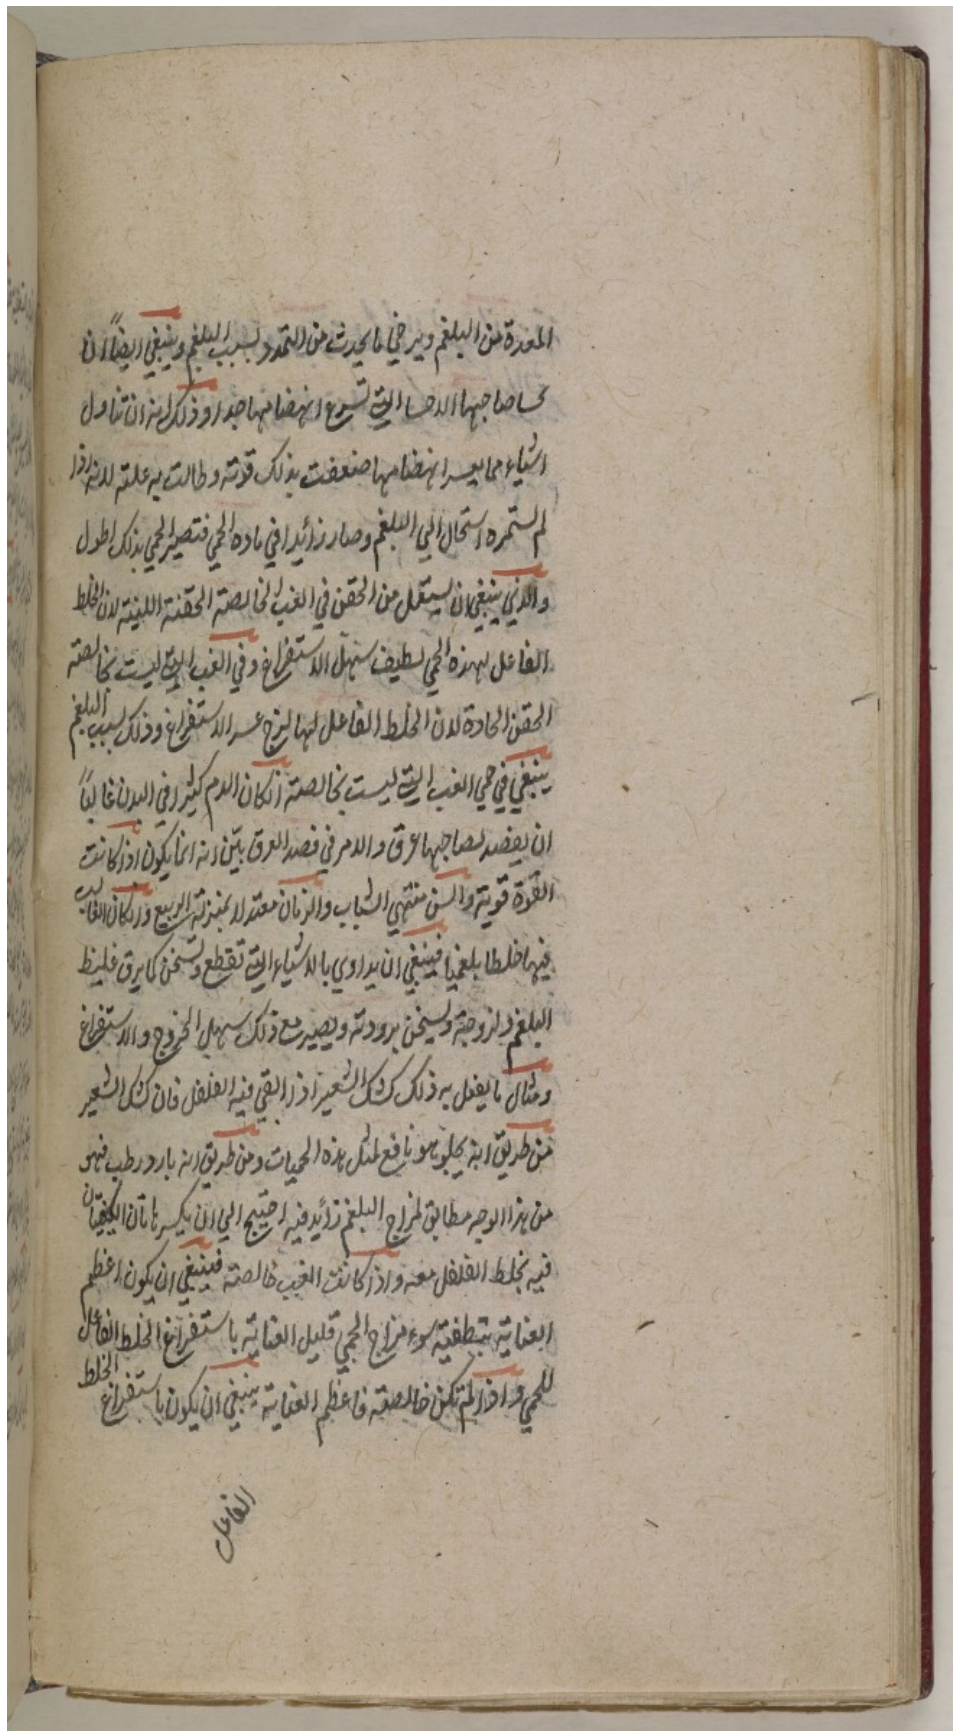 المعدة من البلغم ويرخي ما يحدث من التمدد بسبب البلغم وينبغي ايضاً ان
يحسا صاحبها الاحساء التي تسرع انهضامها جدا وذلك انه ان تناول
اشياء مما يعسر انهضامها ضعفت بذلك قوته وطالت به علته لانه اذا
لم تستمره استحال الي البلغم وصار زائدا في ماده الحمي فتصير الحمي بذلك اطول
والذي ينبغي ان يستعمل من الحقن في الغب الخالصة الحقنة اللينة لان الخلط
الفاعل لهذه الحمي لطيف سهل الاستفراغ وفي الغب التي ليست بخالصة
الحقن الحادة لان الخلط الفاعل لها لزج عسر الاستفراغ وذلك بسبب البلغم
ينبغي في حمي الغب التي ليست بخالصة ان كان الدم كثيرا في البدن غالباً
ان يفصد لصاحبها عرق والامر في فصد العرق بيّن انه انما يكون اذا كانت
القوة قوية والسن منتهي الشباب والزمان معتدلا بمنزلة الربيع وان كان الغالب
فيها خلطا بلغميا فينبغي ان يداوي بالاشياء التي تقطع وتسخن كما يرق غليظ
البلغم ولزوجته وتسخن برودته ويصير مع ذلك سهل الخروج والاستفراغ
ومثال ما يفعل به ذلك كشك الشعير اذا القي فيه الفلفل فان كشك الشعير
من طريق انه يجلو هو نافع لمثل هذه الحميات ومن طريق انه بارد رطب فهو
من هذا الوجه مطابق لمزاج البلغم زائد فيه احتيج الي ان يكسر هاتان الكيفيتان
فيه بخلط الفلفل معه واذا كانت الغب خالصة فينبغي ان يكون اعظم
العناية بتطفية سوء مزاج الحمي قليل العناية باستفراغ الخلط الفاعل
للحمي واذا لم تكن خالصة فاعظم العناية ينبغي ان يكون باستفراغ الخلط
الفاعل